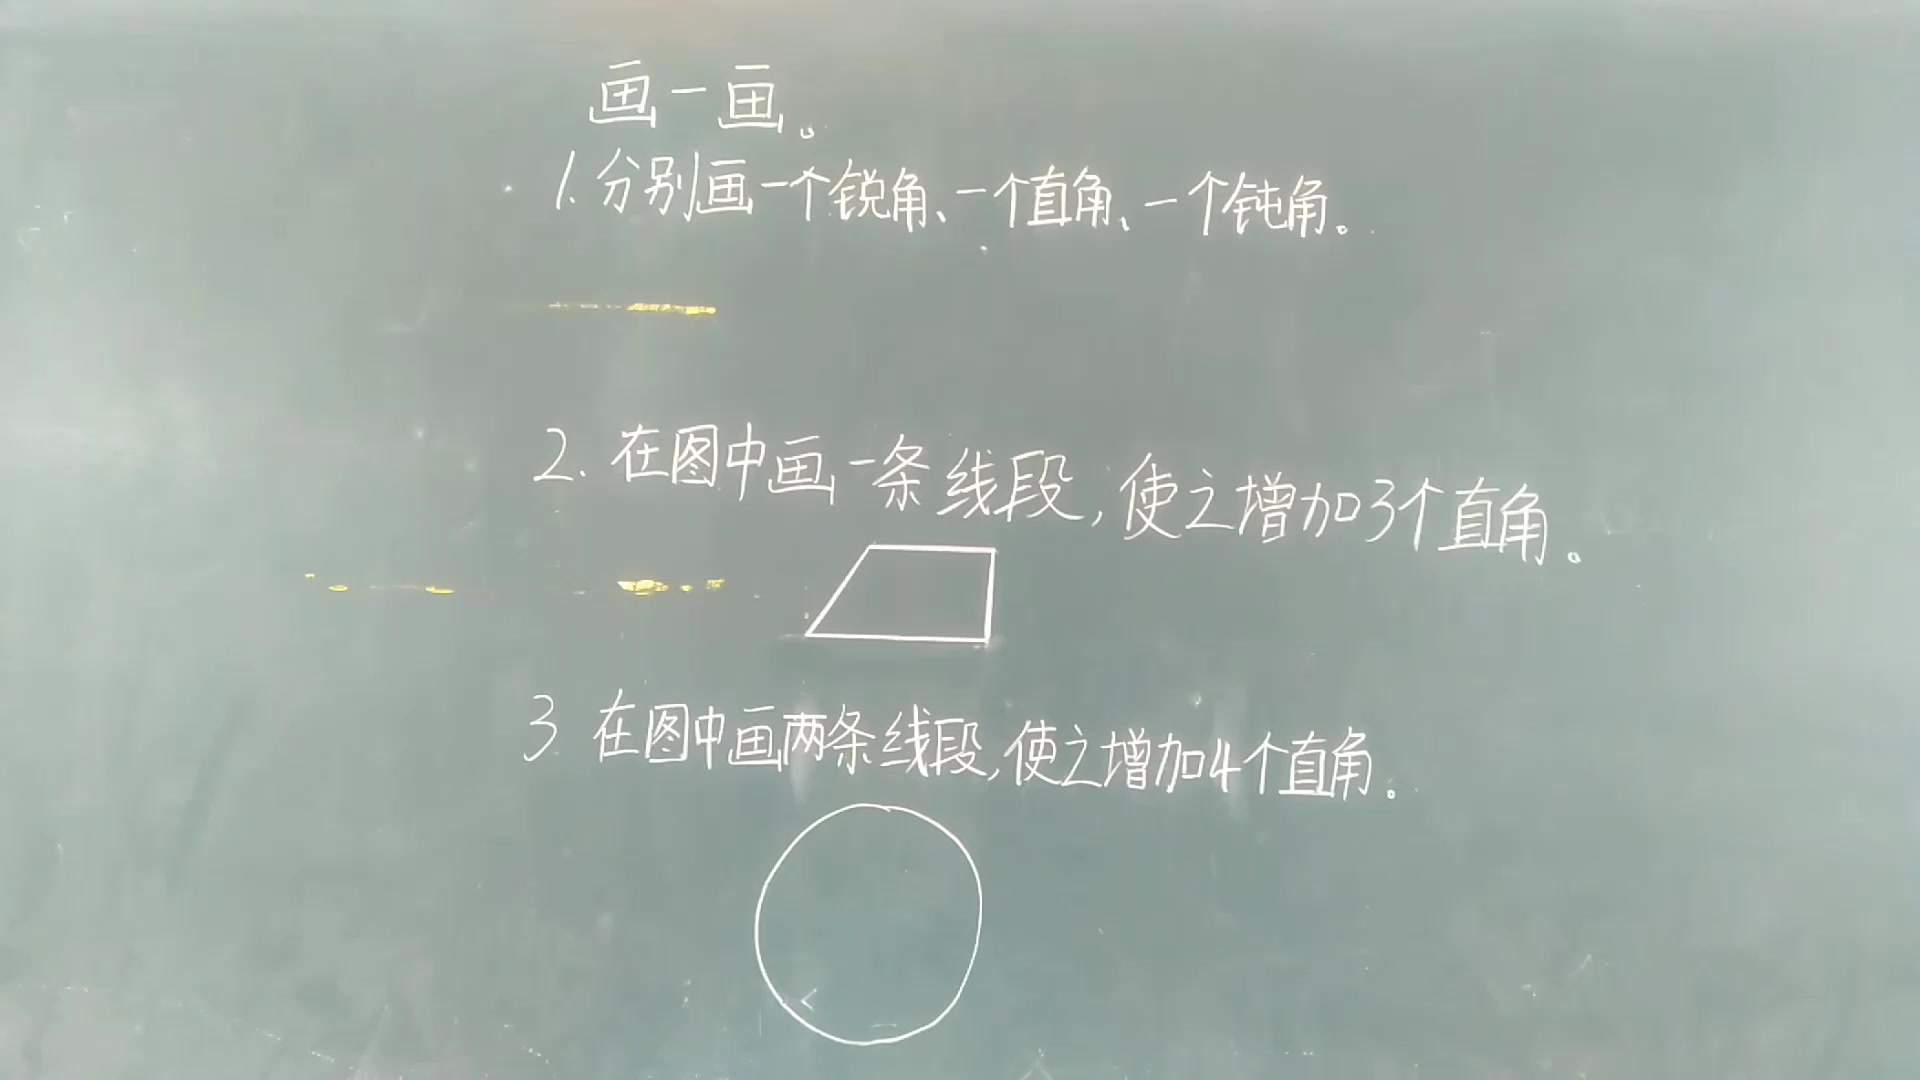 画一画。
1.分别画一个锐角、一个直角、一个钝角。
2.在图中画一条线段,使之增加3个直角。
3 在图中画两条线段,使之增加4个直角。